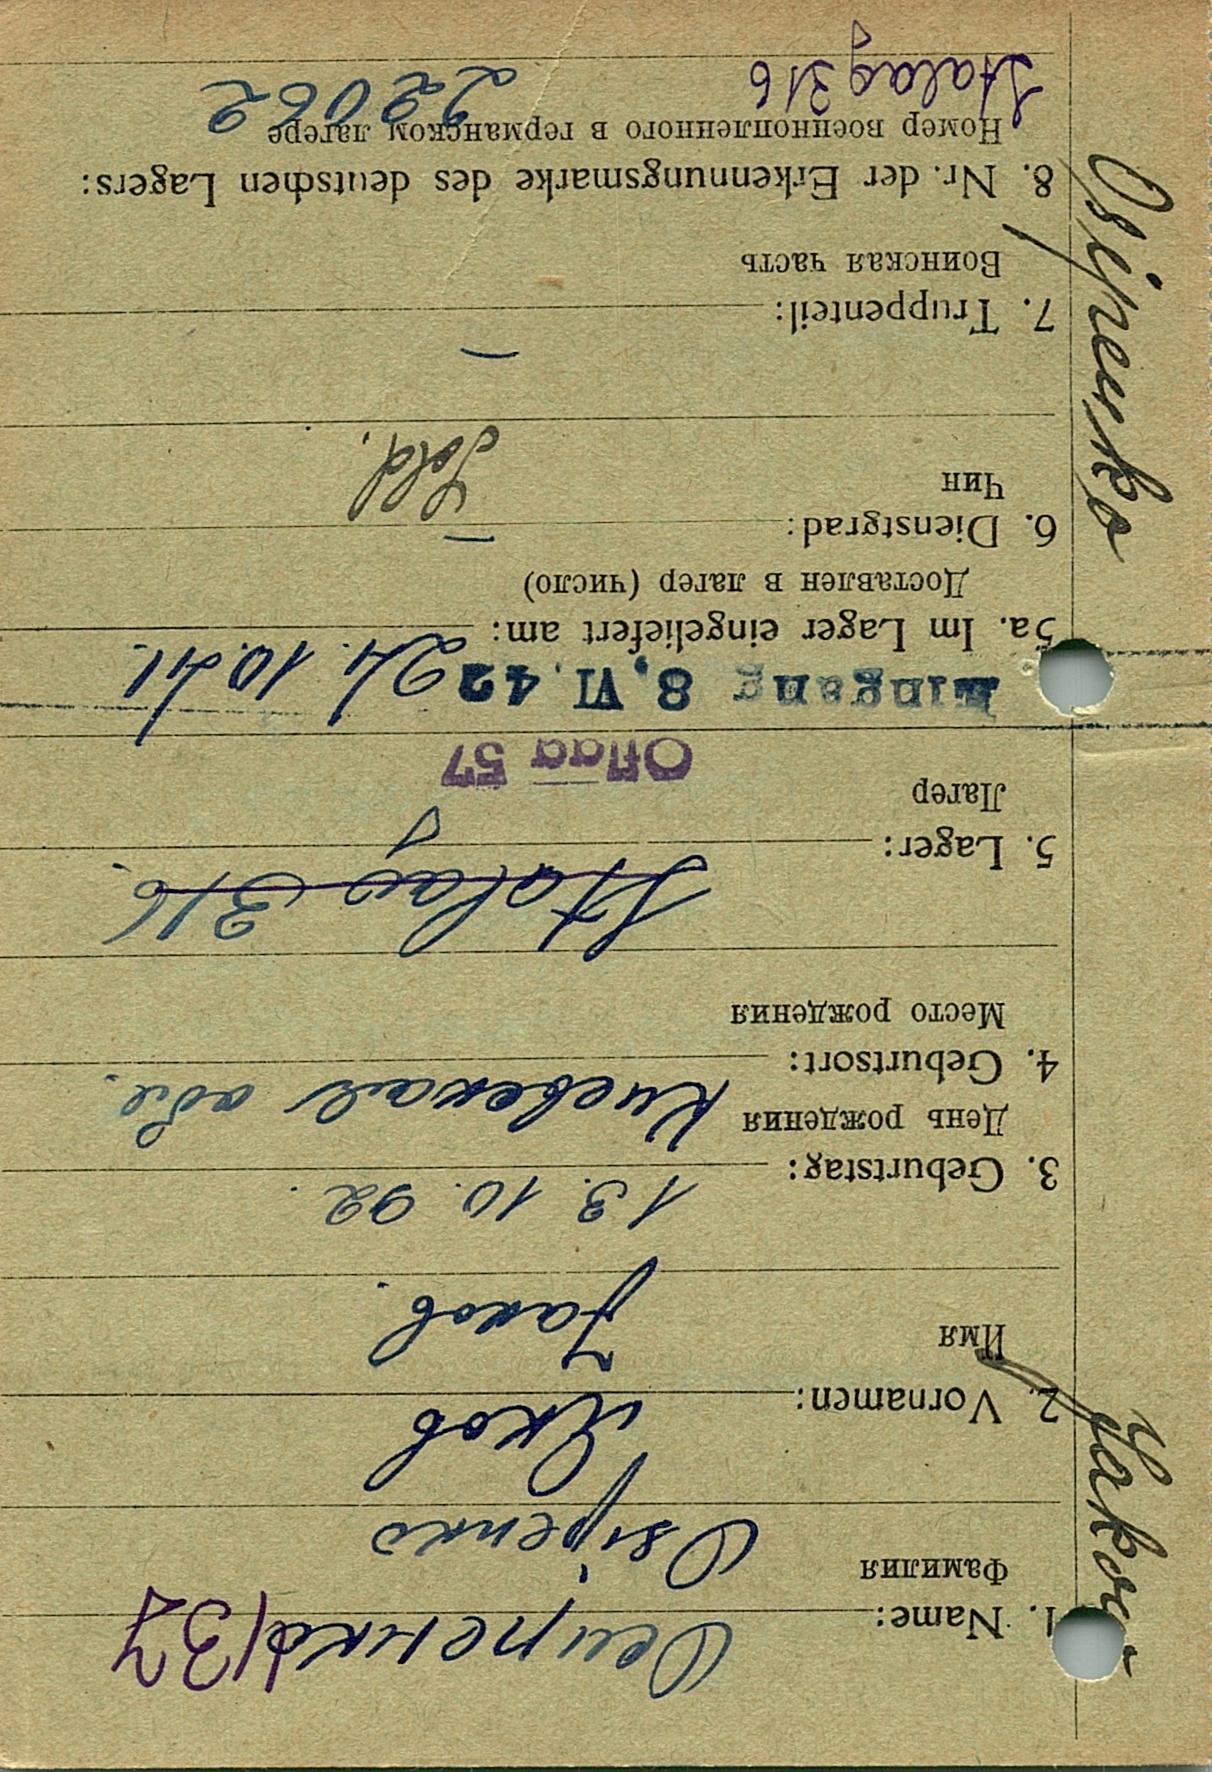 1. Name: Осипенко 137
Фамилия
Osipenko
Яков
2. Vornamen:
Имя
Jakob.
3. Geburtstag: 13. 10. 92.
День рождения
4. Geburtsort: Киевская обл.
Место рождения
Stalag 316.
5. Lager:
Лагер
Oflag 57
Eingang 8. VI. 42 24. 10. 41.
5a. Im Lager eingeliefert am:
Доставлен в лагер (число)
6. Dienstgrad: —
Чин
Sold.
7. Truppenteil: —
Воинская часть
8. Nr. der Erkennungsmarke des deutschen Lagers:
Номер военнопленного в германском лагере
Stalag 316 22062
Osipenko
Jakow